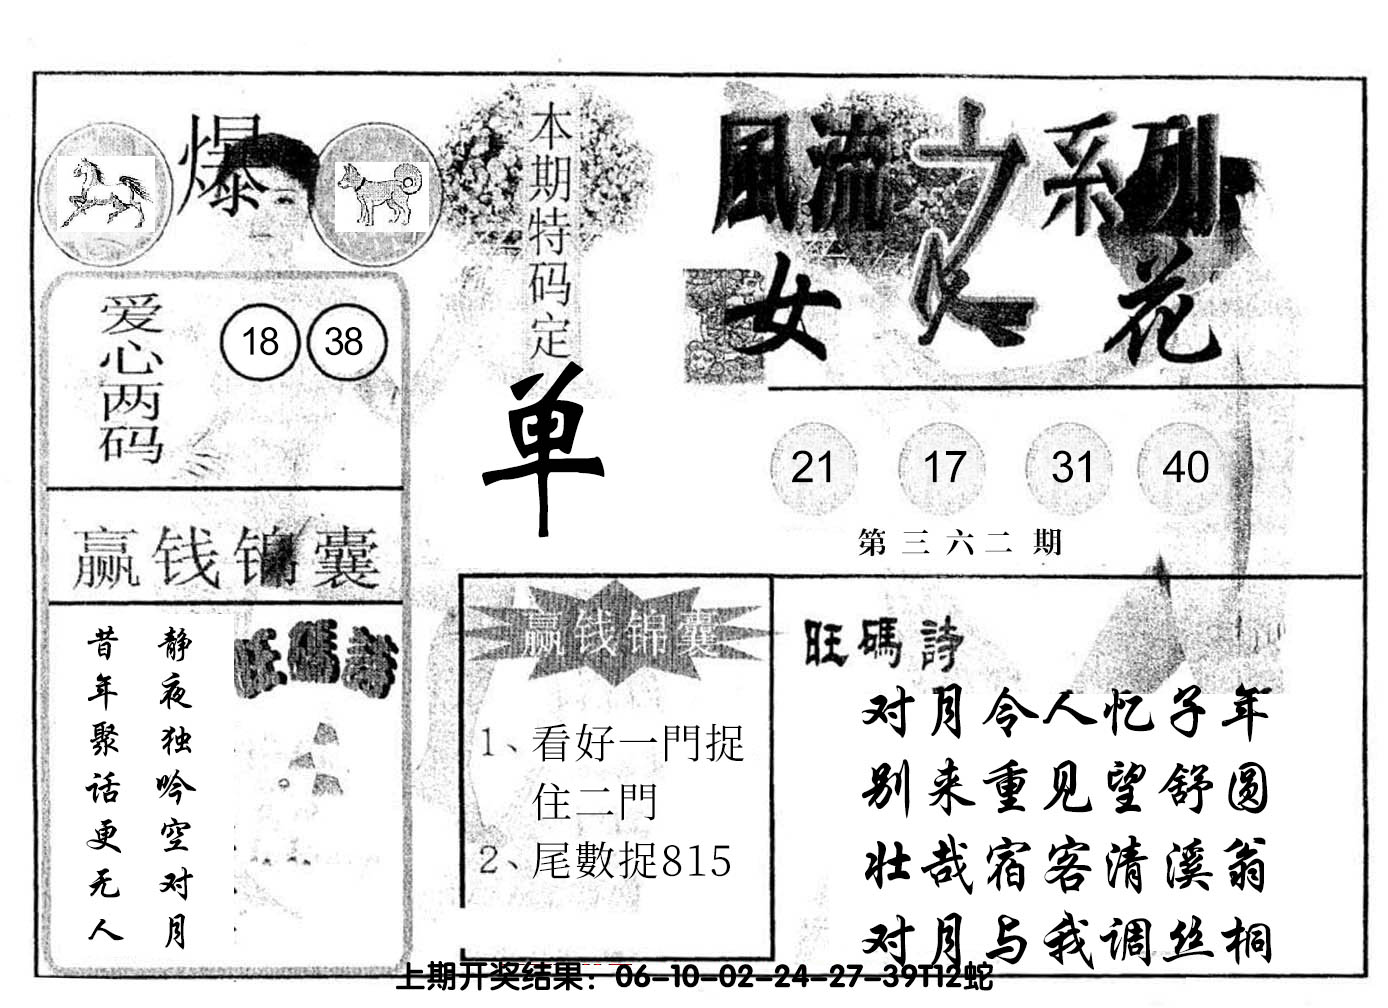 爆
爱心两码
18 38
赢钱锦囊
静夜独吟空对月
昔年聚话更无人
旺碼詩
本期特码定
单
風流之系列
女人花
21 17 31 40
第三六二期
赢钱锦囊
1、看好一門捉
住二門
2、尾數捉815
旺碼詩
对月令人忆子年
别来重见望舒圆
壮哉宿客清溪翁
对月与我调丝桐
上期开奖结果：06-10-02-24-27-39T12蛇